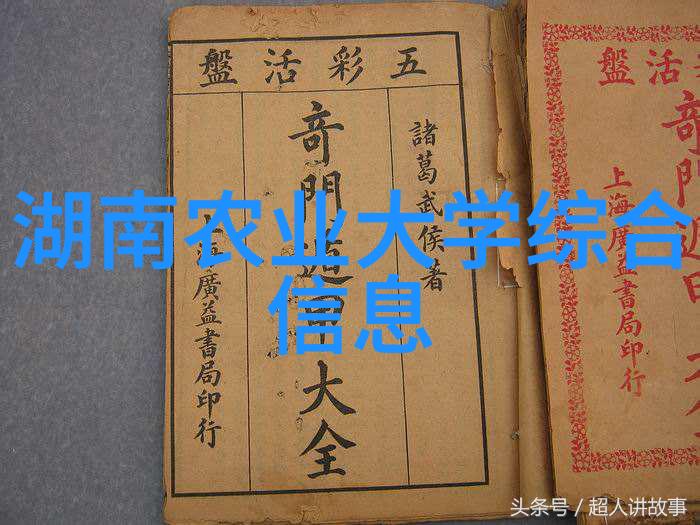 五彩活盤
諸葛武侯著
奇門遁甲大全
上海廣益書局印行
活盤
奇門遁甲大全
上海廣益書局印行
湖南农业大学综合
信息
头条号 / 超人讲故事